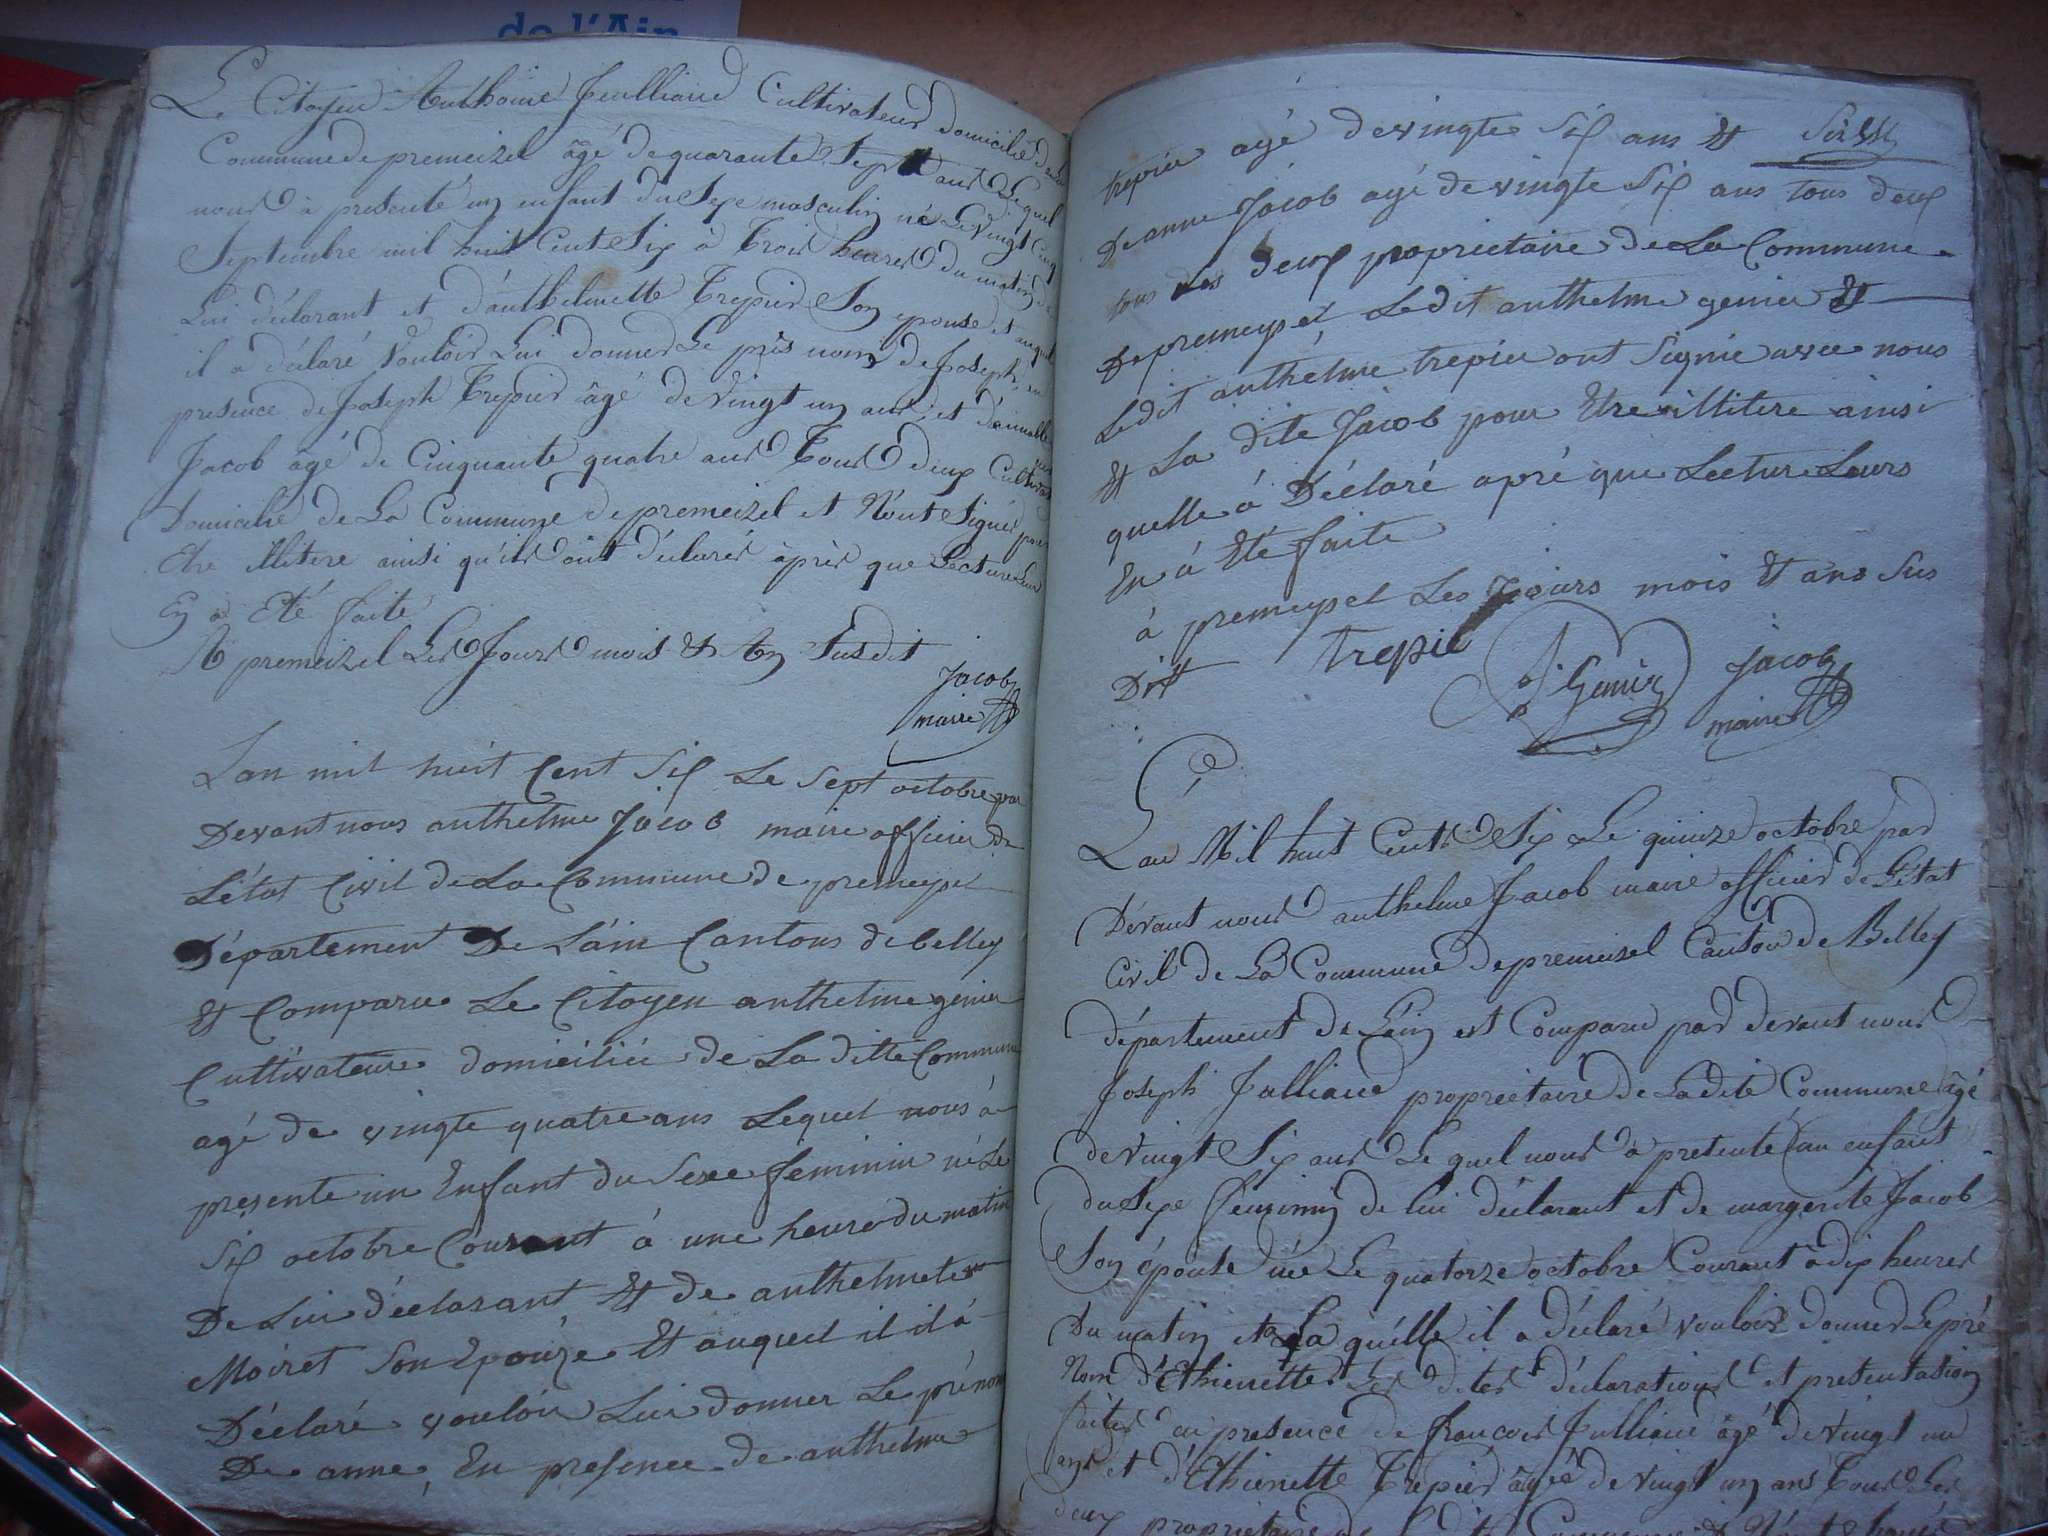 de l'Ain
Le Citoyen Anthoine Jeulliand Cultivateur domicilié de La
Commune de premeizel âgé de quarante Sept ans Lequel
nous à presenté un enfant du Sexe masculin né Le Vingt Cinq
Septembre mil huit Cent Six à Trois heures du matin de
Lui déclarant et d'anthelmette Trepier Son epouse et auquel
il a déclaré Vouloir Lui donner Le prés nom de Joseph, en
presence de Joseph Trepier âgé de Vingt un ans et
Jacob âgé de Cinquante quatre ans Tous deux
Domicilié de La Commune de premeizel et N'ont Signés pour
Etre illitere ainsi qu'ils ont déclarés après que Lecture Leur
En a Eté faite
A premeizel Les Jours mois & An Susdit
Jacob
maire
Lan mil huit Cent Six Le Sept octobre par
Devant nous anthelme Jacob maire officier de
L'état Civil de La Commune de premeysel
Département De L'ain Cantons de belley
Et Comparu Le Citoyen anthelme genier
Cultivateur domiciliée de La ditte Commune
agé de vingte quatre ans Lequel nous à
presente un Enfant du Sexe feminin né Le
Six octobre Courant à une heure du matin
De Lui déclarant Et de anthelmete
Moiret Son Epouze Et auquel il il à
Déclaré vouloir Lui donner Le prénom
De anne, En presence de anthelme
trepier agé de vingte Six ans Et
De anne Jacob agé de vingte Six ans tous deux
tous des deux proprietaire de La Commune
De premeysel Ledit anthelme genier Et
Ledit anthelme trepier ont Signie avec nous
Et La dite Jacob pour Etre illitere ainsi
quelle à Déclaré apré que Lecture Leurs
En à Eté faite
à premeysel Les jours mois Et ans Sus
Ditt trepié Genier Jacob
maire
L'an Mil huit Cents Six Le quinze octobre par
Dévant nous anthelme Jacob maire officier de L'état
Civil de La Commune de premeizel Canton de Belley
département de L'ain est Comparu par devant nous
Joseph Julliand proprietaire de Ladite Commune âgé
de Vingt Six ans Le quel nous à presenté un enfant
du Sexe feminin de lui déclarant et de margerite Jacob
Son épouse née Le quatorze octobre Courant à dix heures
Du matin et a La quélle il a déclaré vouloir donner Le pré
Nom d'Ethienette Les dites déclarations et presentation
faites en presence de francois Julliand âgé de Vingt un
ans et d'Ethienette Trepier âgée de Vingt un ans Tous Les
deux proprietaire de